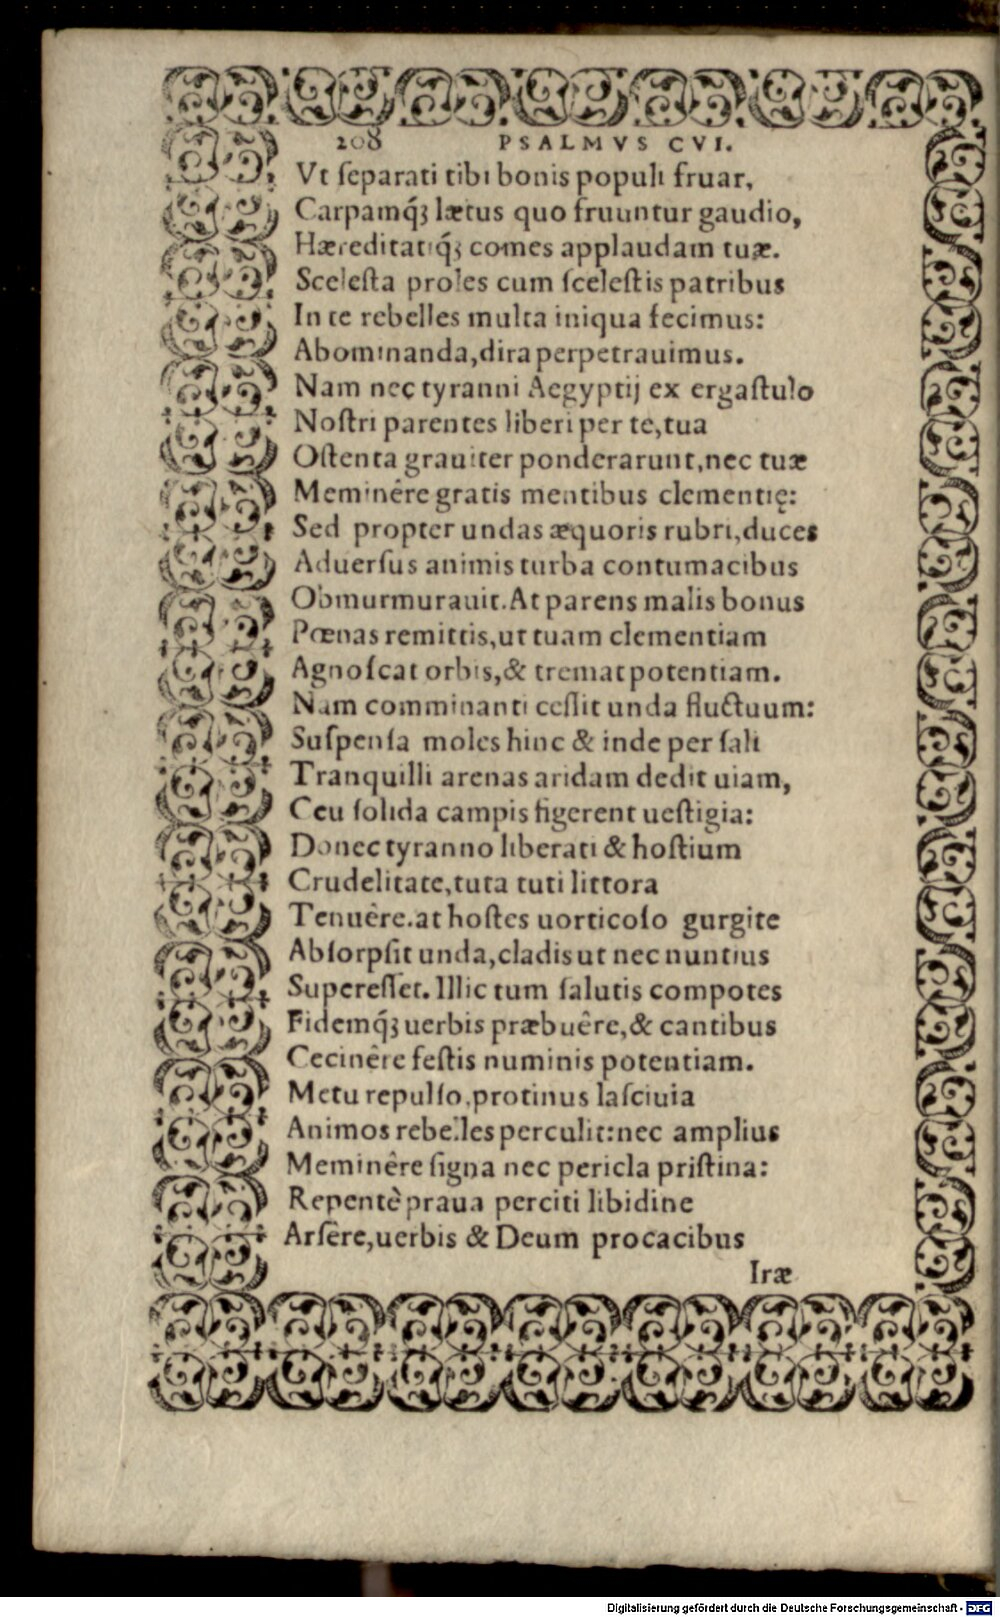 208 PSALMVS CVI.
Vt ſeparati tibi bonis populi fruar,
Carpamq́ꝫ lætus quo fruuntur gaudio,
Hæreditatiq́ꝫ comes applaudam tuæ.
Sceleſta proles cum ſceleſtis patribus
In te rebelles multa iniqua fecimus:
Abominanda, dira perpetrauimus.
Nam nec tyranni Aegyptij ex ergaſtulo
Noſtri parentes liberi per te, tua
Oſtenta grauiter ponderarunt, nec tuæ
Meminêre gratis mentibus clementię:
Sed propter undas æquoris rubri, duces
Aduerſus animis turba contumacibus
Obmurmurauit. At parens malis bonus
Pœnas remittis, ut tuam clementiam
Agnoſcat orbis, & tremat potentiam.
Nam comminanti ceſſit unda fluctuum:
Suſpenſa moles hinc & inde per ſali
Tranquilli arenas aridam dedit uiam,
Ceu ſolida campis figerent ueſtigia:
Donec tyranno liberati & hoſtium
Crudelitate, tuta tuti littora
Tenuêre. at hoſtes uorticoſo gurgite
Abſorpſit unda, cladis ut nec nuntius
Supereſſet. Illic tum ſalutis compotes
Fidemq́ꝫ uerbis præbuêre, & cantibus
Cecinêre feſtis numinis potentiam.
Metu repulſo, protinus laſciuia
Animos rebelles perculit: nec amplius
Meminêre ſigna nec pericla priſtina:
Repentè praua perciti libidine
Arſêre, uerbis & Deum procacibus
Iræ
Digitalisierung gefördert durch die Deutsche Forschungsgemeinschaft - DFG